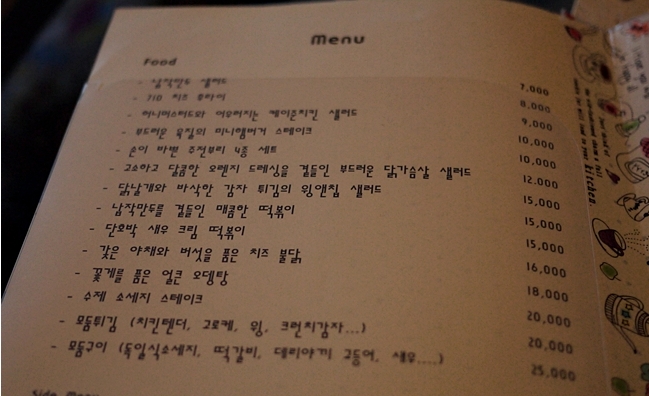 Menu
Food
- 납작만두 샐러드 7,000
- 기네 치즈 후라이 8,000
- 허니머스터드와 어우러지는 케이준치킨 샐러드 9,000
- 부드러운 육질의 미니햄버거 스테이크 10,000
- 손이 바쁜 주전부리 4종 세트 10,000
- 고소하고 달콤한 오렌지 드레싱을 곁들인 부드러운 닭가슴살 샐러드 12,000
- 닭날개와 바삭한 감자 튀김의 윙앤칩 샐러드 15,000
- 납작만두를 곁들인 매콤한 떡볶이 15,000
- 단호박 새우 크림 떡볶이 15,000
- 갖은 야채와 버섯을 품은 치즈 불닭 16,000
- 꽃게를 품은 얼큰 오뎅탕 18,000
- 수제 소세지 스테이크 20,000
- 모듬튀김 (치킨텐더, 고로케, 윙, 크런치감자...) 20,000
- 모듬구이 (독일식소세지, 떡갈비, 데리야끼 고등어, 새우....) 25,000
Side Menu
kitchen.